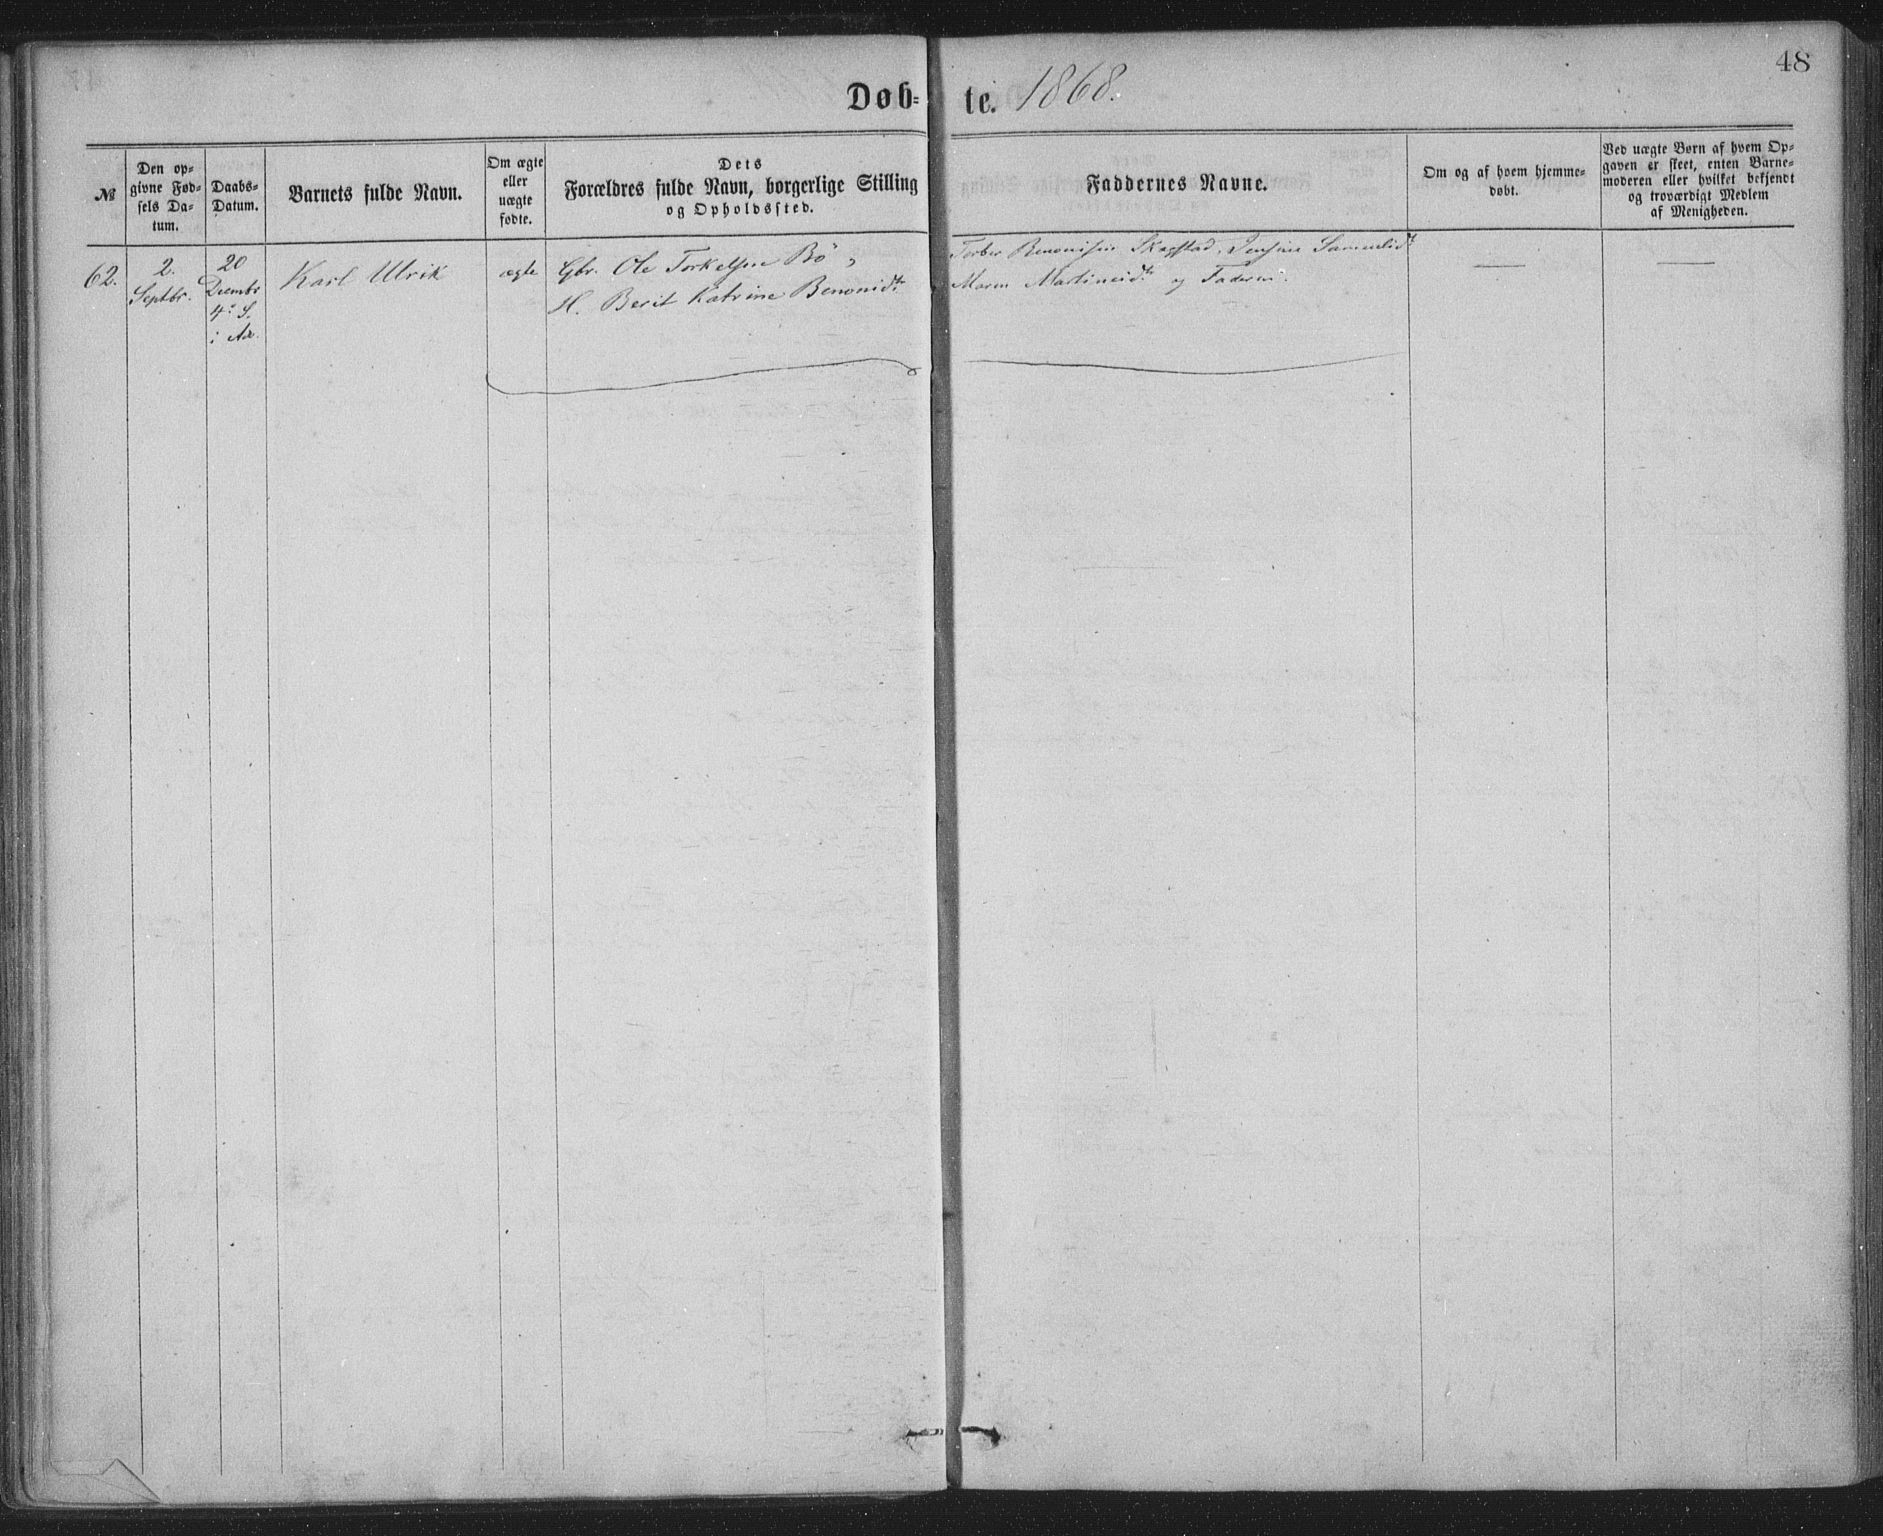 48
Døb- te. 1868.
№
Den op-
givne Fød-
sels Da-
tum.
Daabs-
Datum.
Barnets fulde Navn.
Om ægte
eller
uægte
fødte.
Dets
Forældres fulde Navn, borgerlige Stilling
og Opholdssted.
Faddernes Navne.
Om og af hvem hjemme-
døbt.
Ved uægte Børn af hvem Op-
gaven er skeet, enten Barne-
moderen eller hvilket bekjendt
og troværdigt Medlem
af Menigheden.
62.
2.
Septbr.
20
Decembr
4de S.
i Adv.
Karl Ulrik
ægte
Gbr. Ole Torkelsen Bö
H. Berit Katrine Benonidtr
Benonisen Skagstad, Jensine
Maren og Faderen.